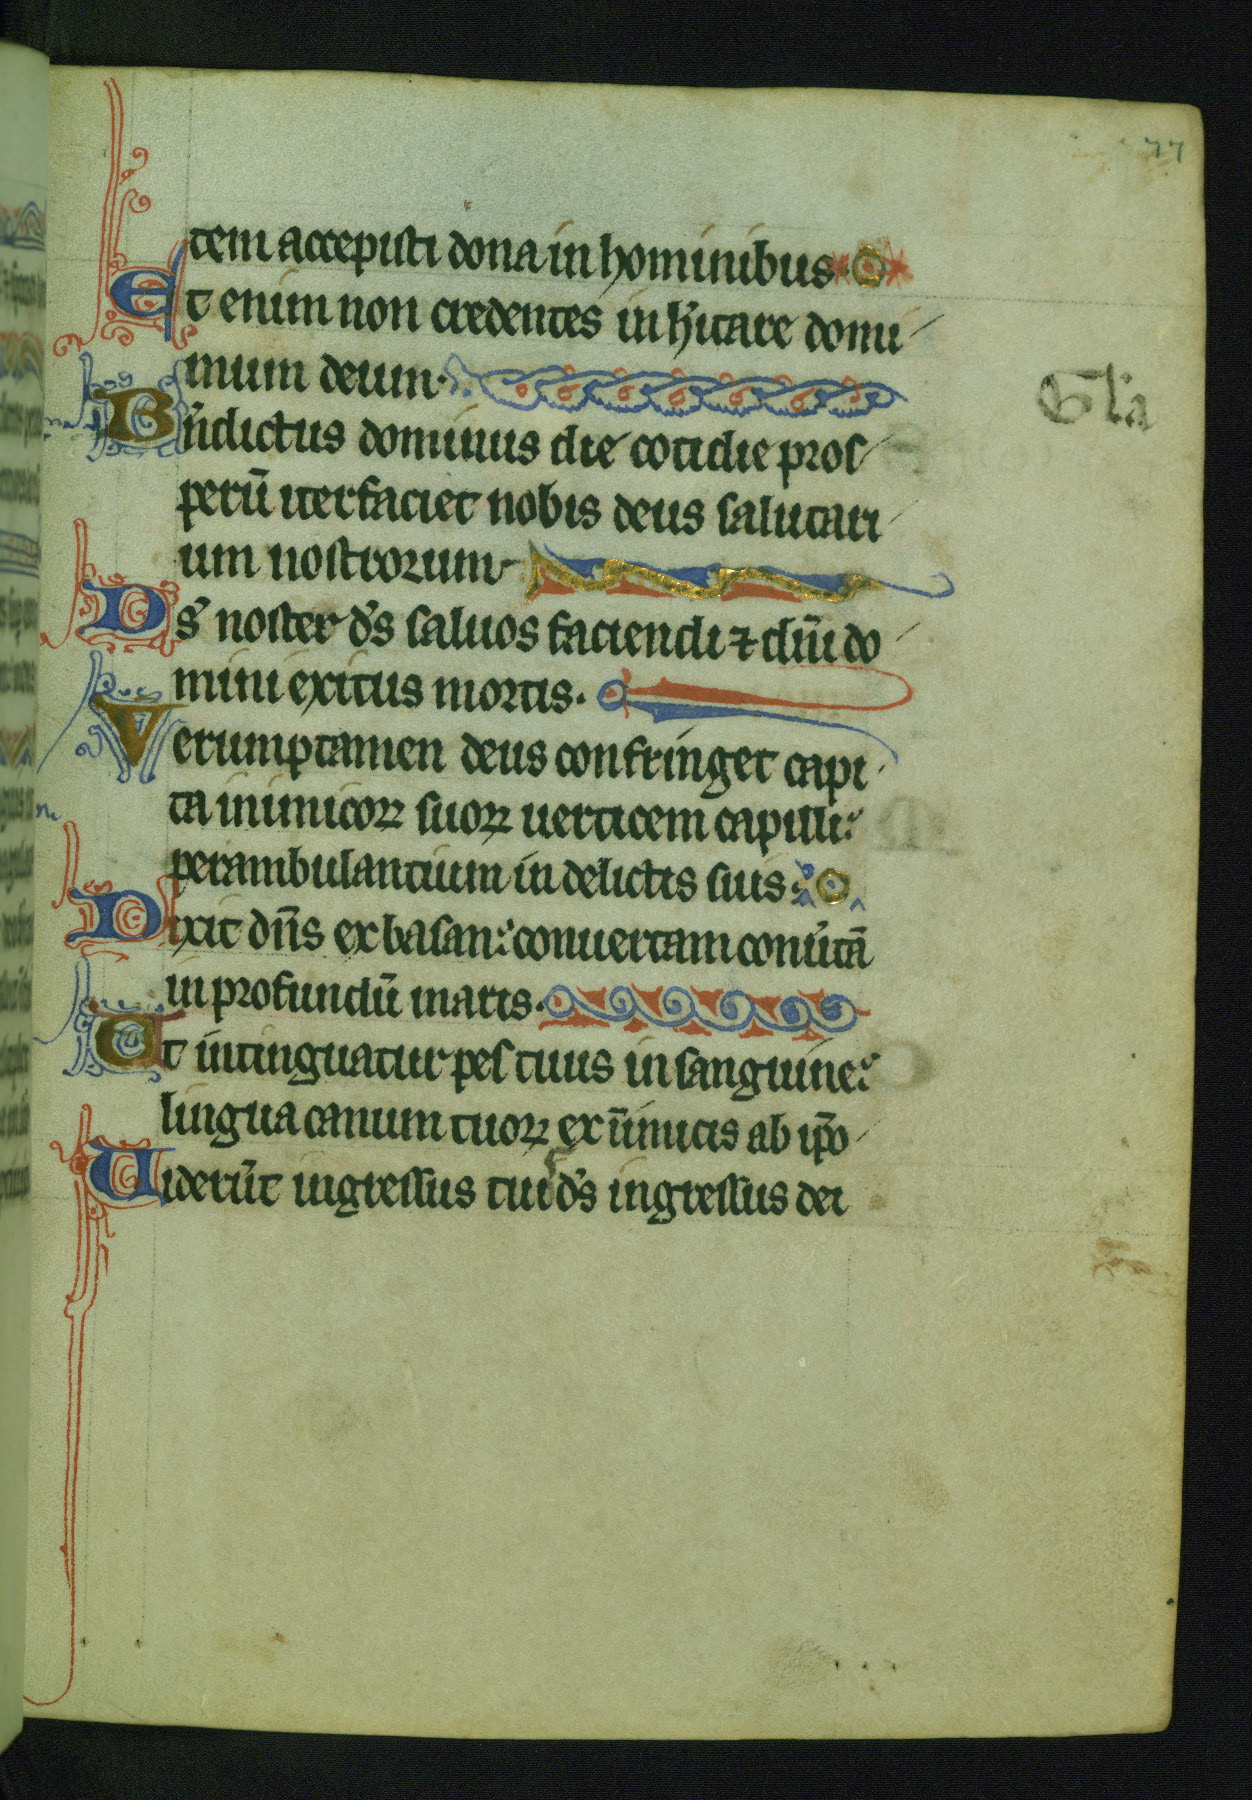 77
tem accepisti dona in hominibus.
Et enim non credentes inh'itare domi
num deum.
Gl'a
Bn̄dictus dominus die cotidie pros
perū iter faciet nobis deus salutari
um nostrorum
Ds' noster d's saluos faciendi ⁊ dn̄i do
mini exitus mortis.
Verumptamen deus confringet capi
ta inimicoꝝ suoꝝ uerticem capilli:
perambulantium in delictis suis:
Dixit dn̄s ex basan: conuertam conu'tā
in profundū maris.
Ut intinguatur pes tuus in sanguine:
lingua canum tuoꝝ ex īimicis ab ip̄o
Uiderūt ingressus tui d's ingressus dei